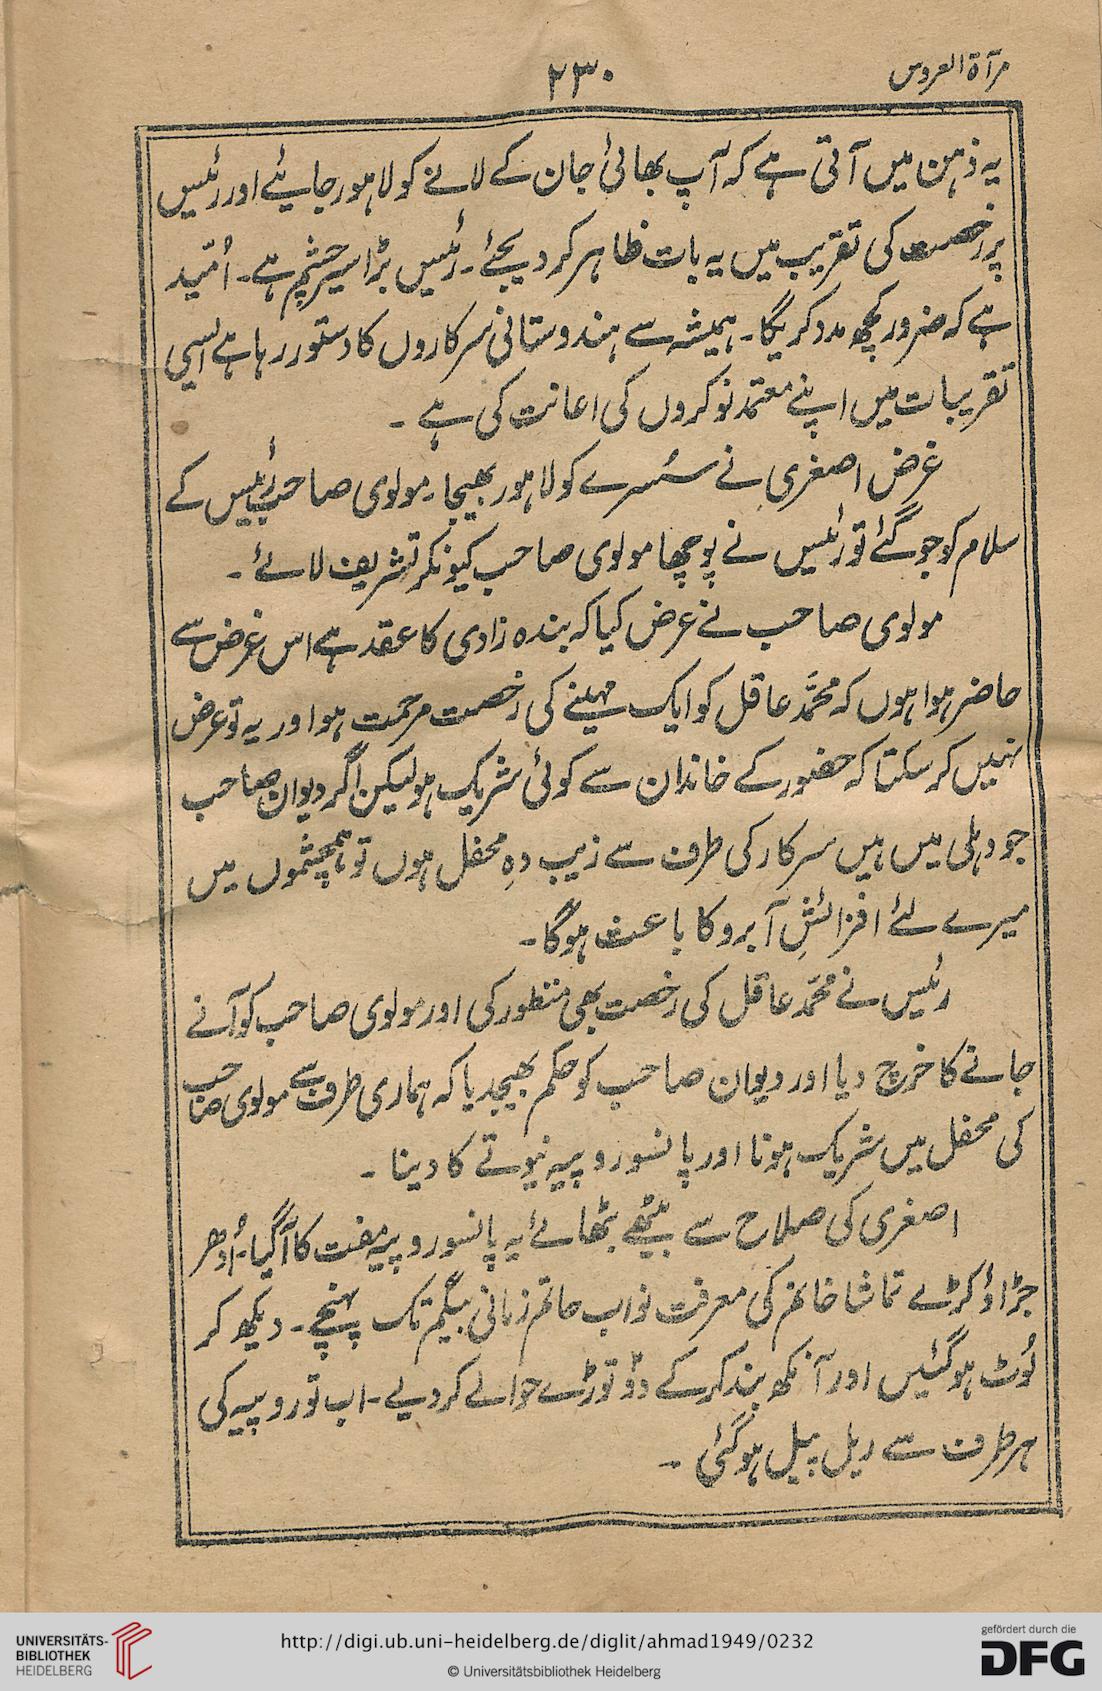 مرآۃ العروس
۲۳۰
یہ ذہن میں آتی ہے کہ آپ بھائی جان کے لانے کو لاہور جایئے اور رئیس
پر رخصت کی تقریب میں یہ بات ظاہر کر دیجئے۔ رئیس بڑا سیر چشم ہے۔ اُمّید
ہے کہ ضرور کچھ مدد کریگا۔ ہمیشہ سے ہندوستانی سرکاروں کا دستور رہا ہے ایسی
تقریبات میں اپنے معتمد نوکروں کی اعانت کی ہے۔
غرض اصغری نے سُسرے کو لاہور بھیجا۔ مولوی صاحب رئیس کے
سلام کو جو گئے تو رئیس نے پوچھا مولوی صاحب کیونکر تشریف لائے۔
مولوی صاحب نے عرض کیا کہ بندہ زادی کا عقد ہے اس غرض سے
حاضر ہوا ہوں کہ محمّد عاقل کو ایک مہینے کی رخصت مرحمت ہو اور یہ تو عرض
نہیں کر سکتا کہ حضور کے خاندان سے کوئی شریک ہو لیکن اگر دیوان صاحب
جو دہلی میں ہیں سرکار کی طرف سے زیب دہِ محفل ہوں تو ہمچشموں میں
میرے لئے افزائشِ آبرو کا باعث ہوگا۔
رئیس نے محمّد عاقل کی رخصت بھی منظور کی اور مولوی صاحب کو آنے
جانے کا خرچ دیا اور دیوان صاحب کو حکم بھیجدیا کہ ہماری طرف سے مولوی صاحب
کی محفل میں شریک ہونا اور پانسو روپیہ نیوتے کا دینا۔
اصغری کی صلاح سے بیٹھے بٹھائے یہ پانسو روپیہ مفت کا آ گیا۔ اُدھر
جڑاؤ کڑے تماشا خانم کی معرفت نواب حاتم زمانی بیگم تک پہنچے۔ دیکھ کر
لُوٹ ہو گئیں اور آنکھ بند کر کے دو توڑے حوالے کر دیے۔ اب تو روپیہ کی
ہر طرف سے ریل پیل ہو گئی۔
UNIVERSITÄTS-
BIBLIOTHEK
HEIDELBERG
http://digi.ub.uni-heidelberg.de/diglit/ahmad1949/0232
© Universitätsbibliothek Heidelberg
gefördert durch die
DFG